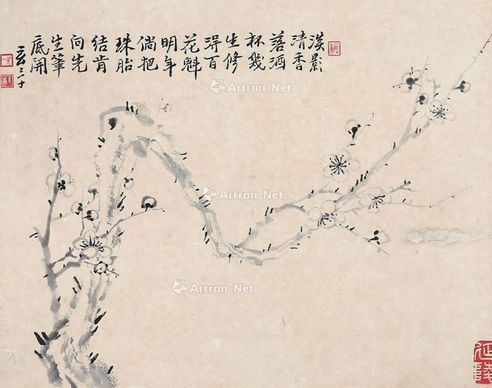 淡影
清香
落酒
杯幾
生修
得百
花魁
明年
倘把
珠胎
結肯
向先
生筆
底開
Artron.Net
Artron.Net
Artron.Net
延陵